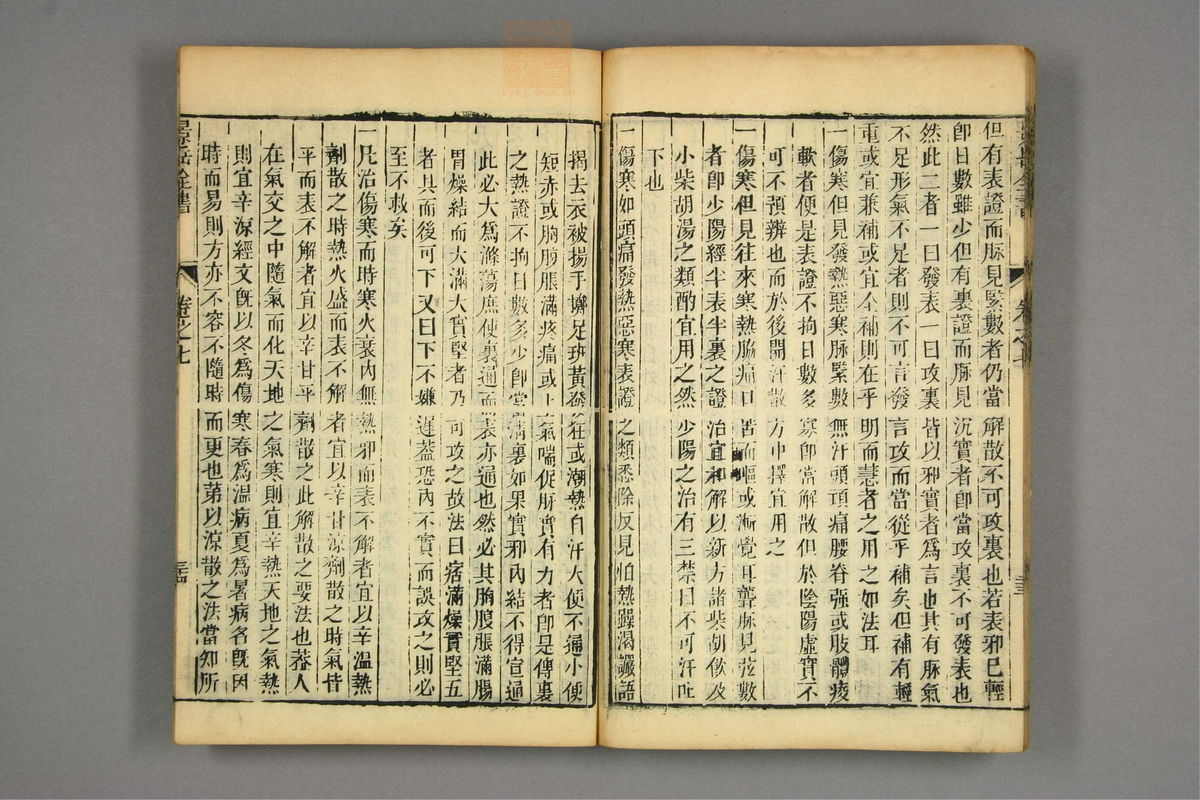 但有表證而脉見緊數者仍當解散不可攻裏也若表邪已輕
卽日數雖少但有裏證而脉見沉實者卽當攻裏不可發表也
然此二者一曰發表一曰攻裏皆以邪實者爲言也其有脉氣
不足形氣不足者則不可言發言攻而當從乎補矣但補有輕
重或宜兼補或宜全補則在乎明而慧者之用之如法耳
一傷寒但見發熱惡寒脉緊數無汗頭項痛腰脊强或肢體痠
軟者便是表證不拘日數多寡卽當解散但於陰陽虛實不
可不預辨也而於後開汗散方中擇宜用之
一傷寒但見往來寒熱脇痛口苦而嘔或漸覺耳聾脉見弦數
者卽少陽經半表半裏之證治宜和解以新方諸柴胡飮及
小柴胡湯之類酌宜用之然少陽之治有三禁曰不可汗吐
下也
一傷寒如頭痛發熱惡寒表證之類悉除反見怕熱躁渴讝語
揭去衣被揚手擲足斑黃發狂或潮熱自汗大便不通小便
短赤或胸腹脹滿疼痛或上氣喘促脉實有力者卽是傳裏
之熱證不拘日數多少卽當淸裏如果實邪內結不得宣通
此必大爲滌蕩庶使裏通而表亦通也然必其胸腹脹滿腸
胃燥結而大滿大實堅者乃可攻之故法曰痞滿燥實堅五
者具而後可下又曰下不嫌遲葢恐內不實而誤攻之則必
至不救矣
一凡治傷寒而時寒火衰內無熱邪而表不解者宜以辛溫熱
劑散之時熱火盛而表不解者宜以辛甘涼劑散之時氣皆
平而表不解者宜以辛甘平劑散之此解散之要法也葢人
在氣交之中隨氣而化天地之氣寒則宜辛熱天地之氣熱
則宜辛涼經文旣以冬爲傷寒春爲溫病夏爲暑病名旣因
時而易則方亦不容不隨時而更也第以涼散之法當知所
景岳全書
卷之七
三三
景岳全書
卷之七
三四